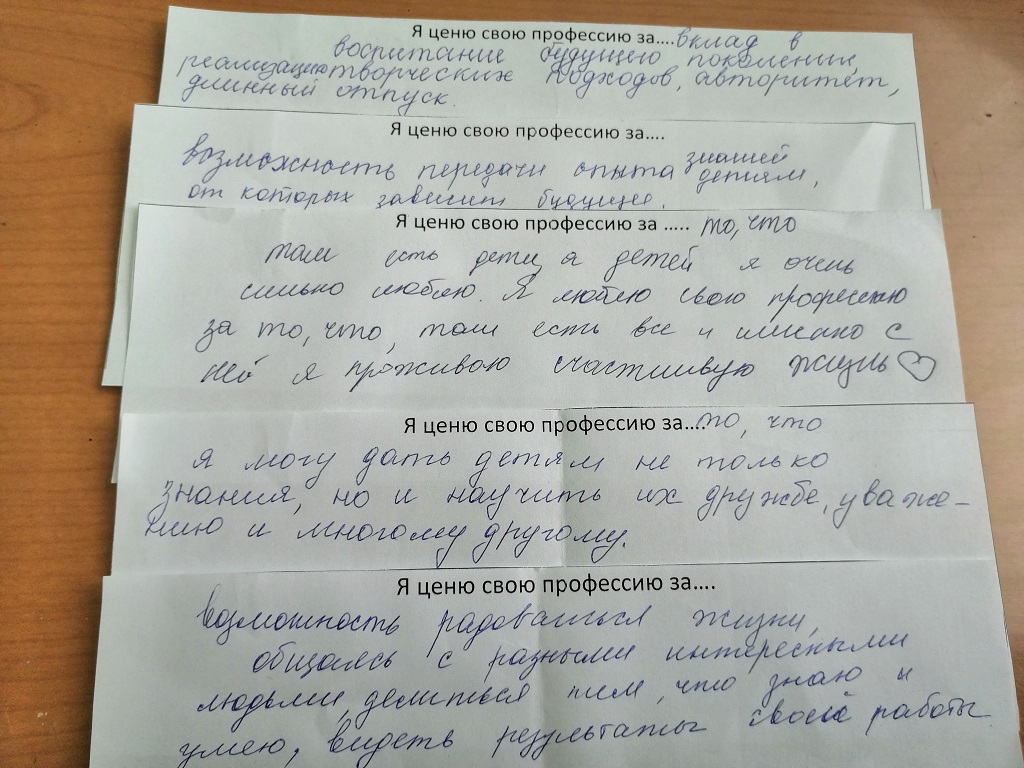 Я ценю свою профессию за....вклад в
воспитание будущего поколении,
реализацию творческих подходов, авторитет,
длинный отпуск.
Я ценю свою профессию за....
возможность передачи опыта знаний
детям,
от которых зависит будущее.
Я ценю свою профессию за ..... то, что
там есть дети, а детей я очень
сильно люблю. Я люблю свою профессию
за то, что, там есть все и именно с
ней я проживаю счастливую жизнь♡
Я ценю свою профессию за....то, что
я могу дать детям не только
знания, но и научить их дружбе, уваже-
нию и многому другому.
Я ценю свою профессию за....
возможность радоваться жизни,
общаясь с разными интересными
людьми, делиться тем, что знаю и
умею, видеть результаты своей работы.